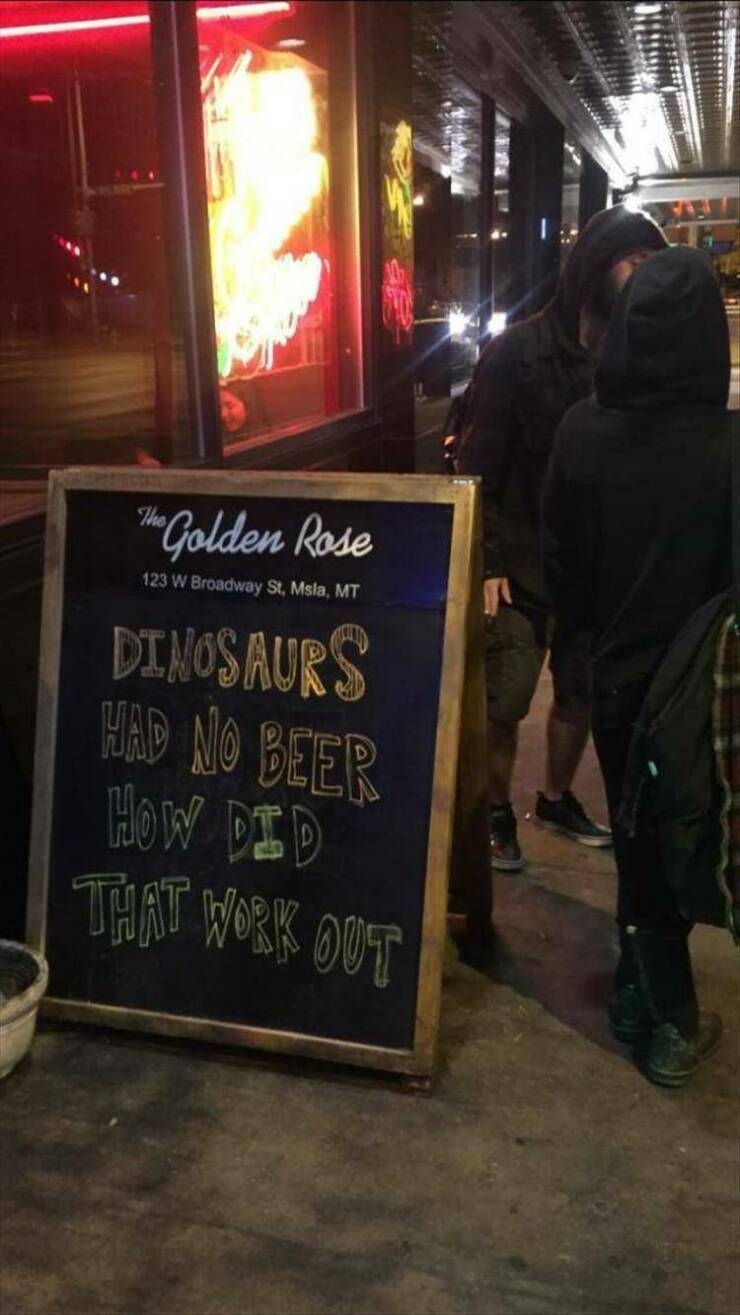 The Golden Rose
123 W Broadway St, Msla, MT
DINOSAURS
HAD NO BEER
HOW DID
THAT WORK OUT